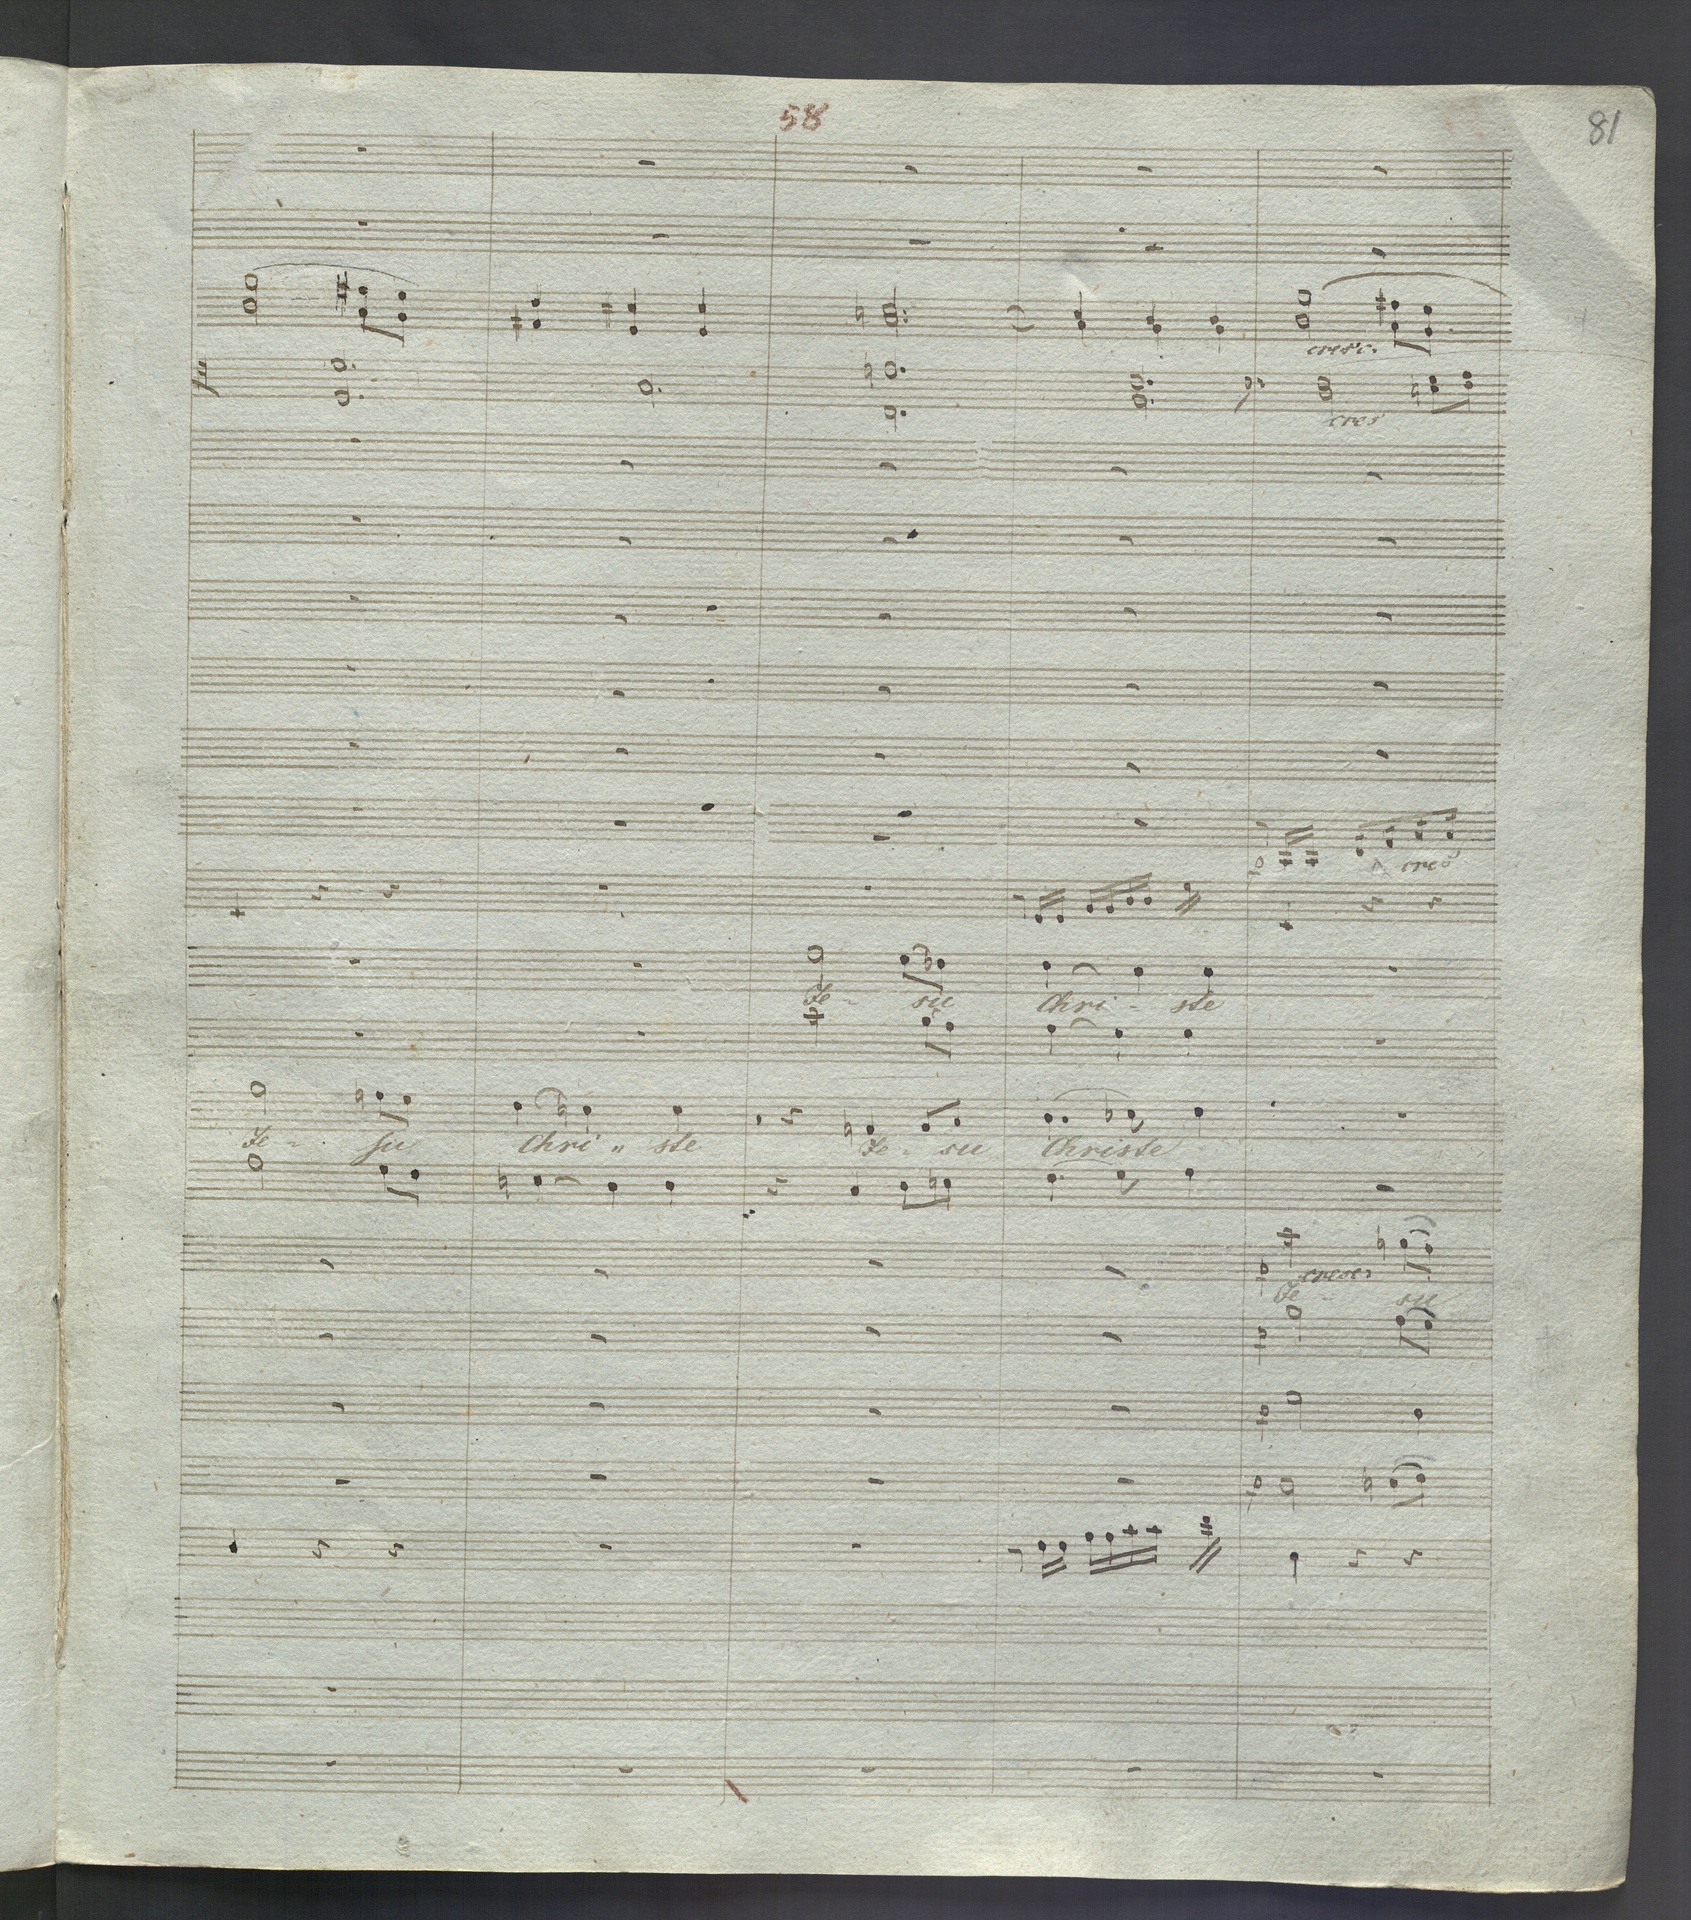 58
81
cresc.
cres
cres
Je - su Chri - ste
Je - su Chri " ste Je - su Christe
cresc:
Je - su